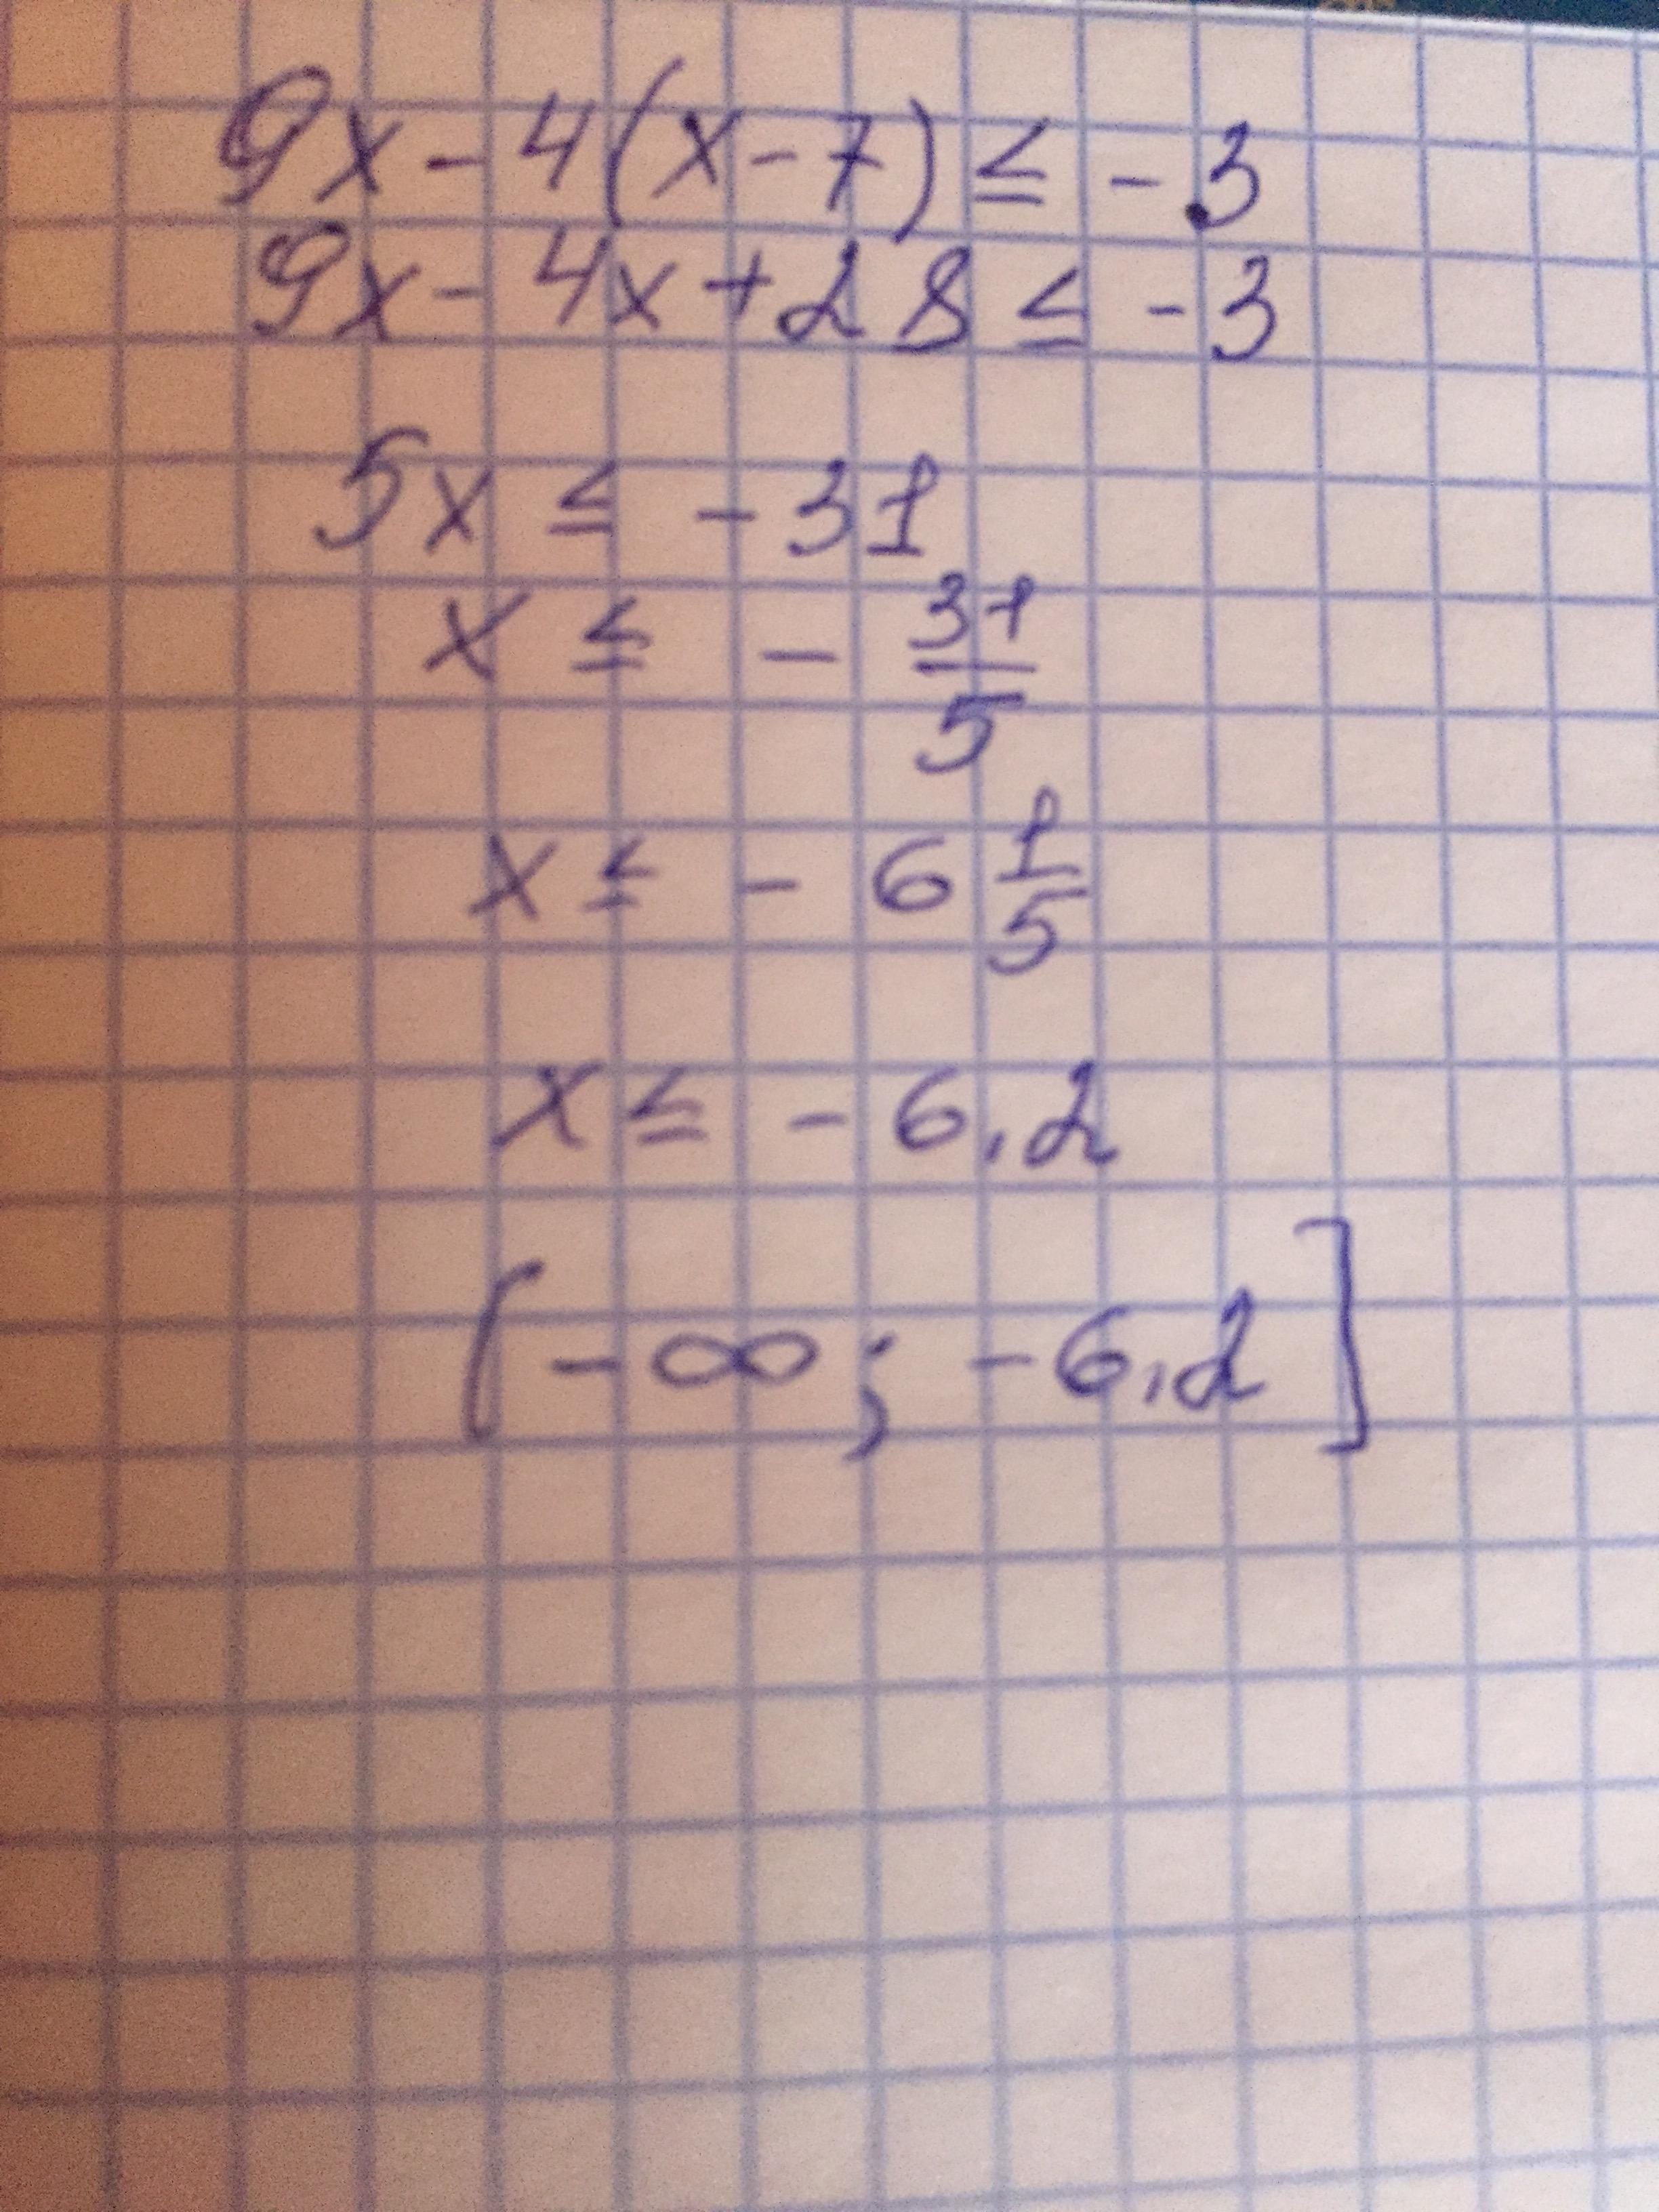 9x - 4(x - 7) ≤ - 3
9x - 4x + 28 ≤ - 3
5x ≤ - 31
x ≤ - 31/5
x ≤ - 6 1/5
x ≤ - 6,2
(- ∞; - 6,2]